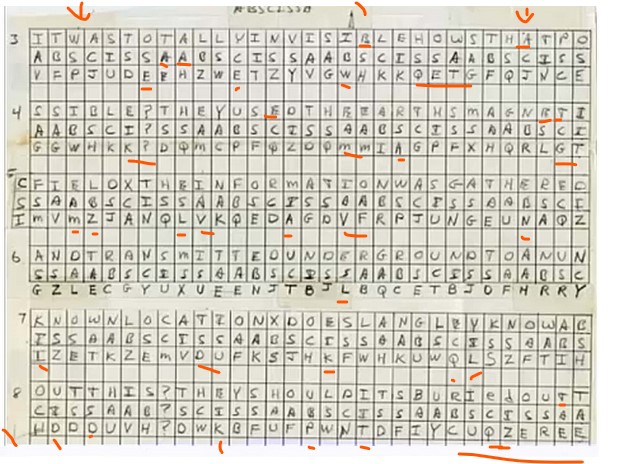 ABSCISSA
3 I T W A S T O T A L L Y I N V I S I B L E H O W S T H A T P O
A B S C I S S A A B S C I S S A A B S C I S S A A B S C I S S
V F P J U D E E H Z W E T Z Y V G W H K K Q E T G F Q J N C E
4 S S I B L E ? T H E Y U S E D T H E E A R T H S m A G N E T I
A A B S C I ? S S A A B S C I S S A A B S C I S S A A B S C I
G G W H K K ? D Q m C P F Q Z D Q m m I A G P F X H Q R L G T
5 C F I E L D X T H E I N F O R m A T I O N W A S G A T H E R E D
S S A A B S C I S S A A B S C I S S A A B S C I S S A A B S C I
I m V m Z J A N Q L V K Q E D A G D V F R P J U N G E U N A Q Z
6 A N D T R A N S m I T T E D U N D E R G R O U N D T O A N U N
S S A A B S C I S S A A B S C I S S A A B S C I S S A A B S C
G Z L E C G Y U X U E E N J T B J L B Q C E T B J D F H R R Y
7 K N O W N L O C A T I O N X D O E S L A N G L E Y K N O W A B
I S S A A B S C I S S A A B S C I S S A A B S C I S S A A B S
I Z E T K Z E m V D U F K S J H K F W H K U W Q L S Z F T I H
8 O U T T H I S ? T H E Y S H O U L D I T S B U R I e d O U T T
C I S S A A B ? S C I S S A A B S C I S S A A B S C I S S A A
H D D D U V H ? D W K B F U F P W N T D F I Y C U Q Z E R E E